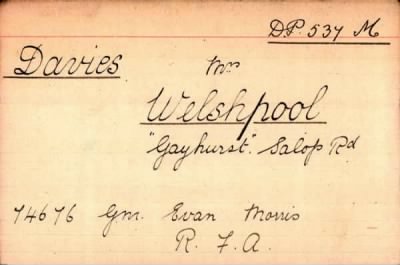 DP. 537 M
Davies Mrs
Welshpool
"Gayhurst". Salop Rd
74676 Gnr. Evan Morris
R. F. A.